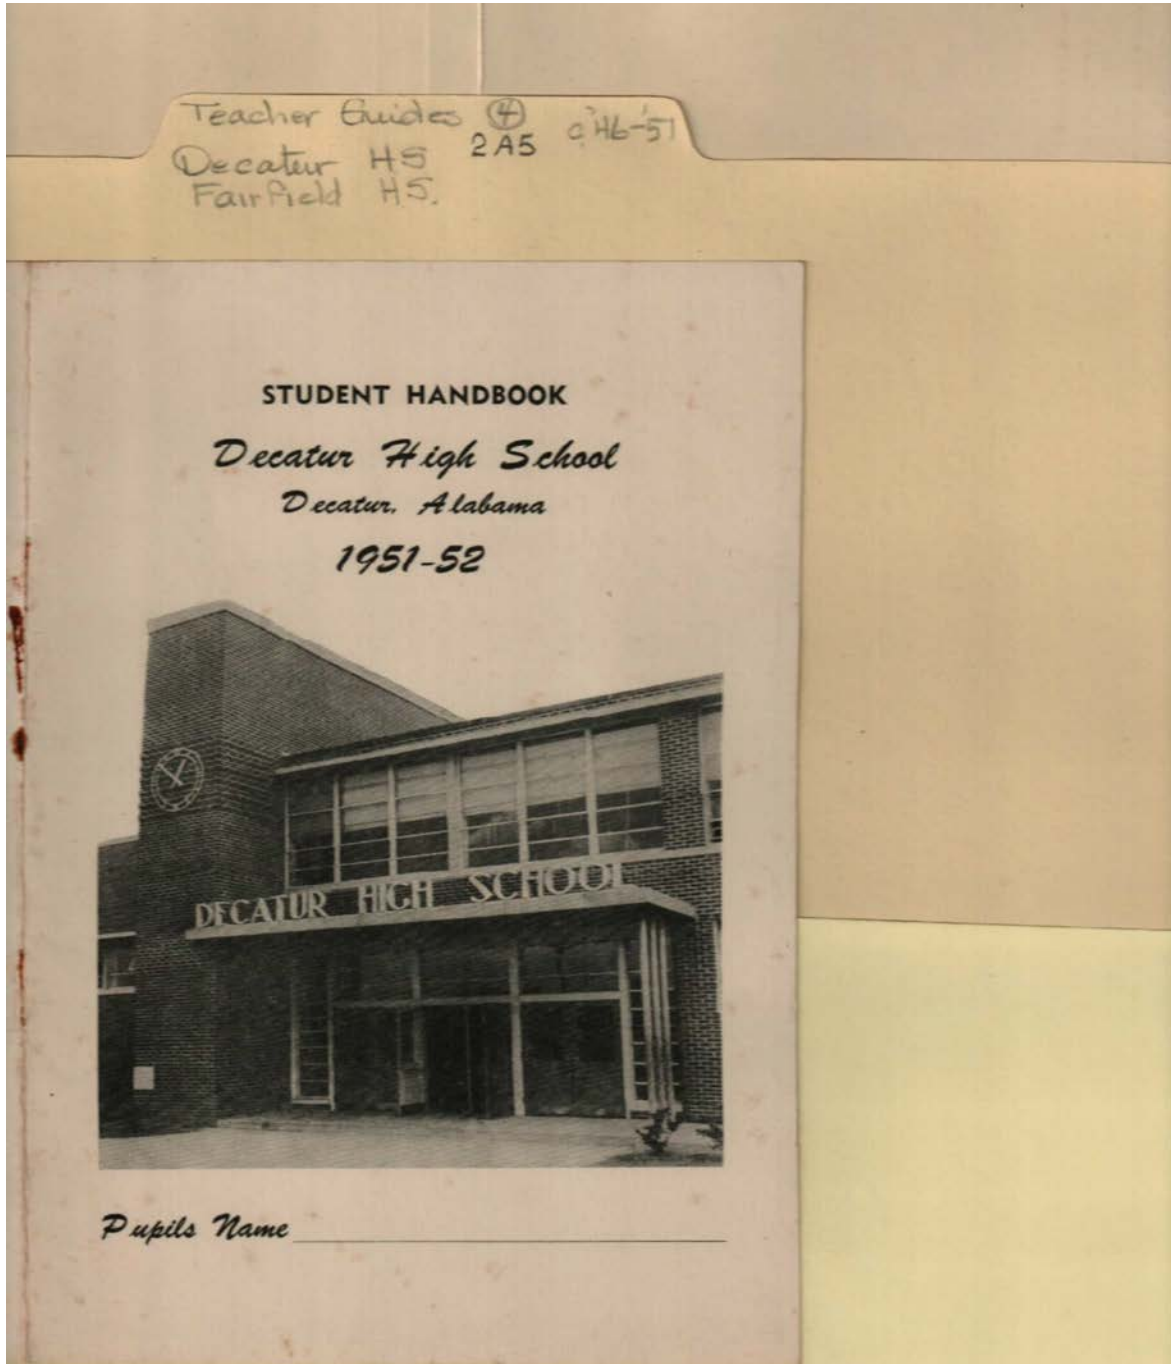 Teacher Guides ④ c '46-'51
2A5
Decatur HS
Fairfield HS.
STUDENT HANDBOOK
Decatur High School
Decatur, Alabama
1951-52
DECATUR HIGH SCHOOL
Pupils Name